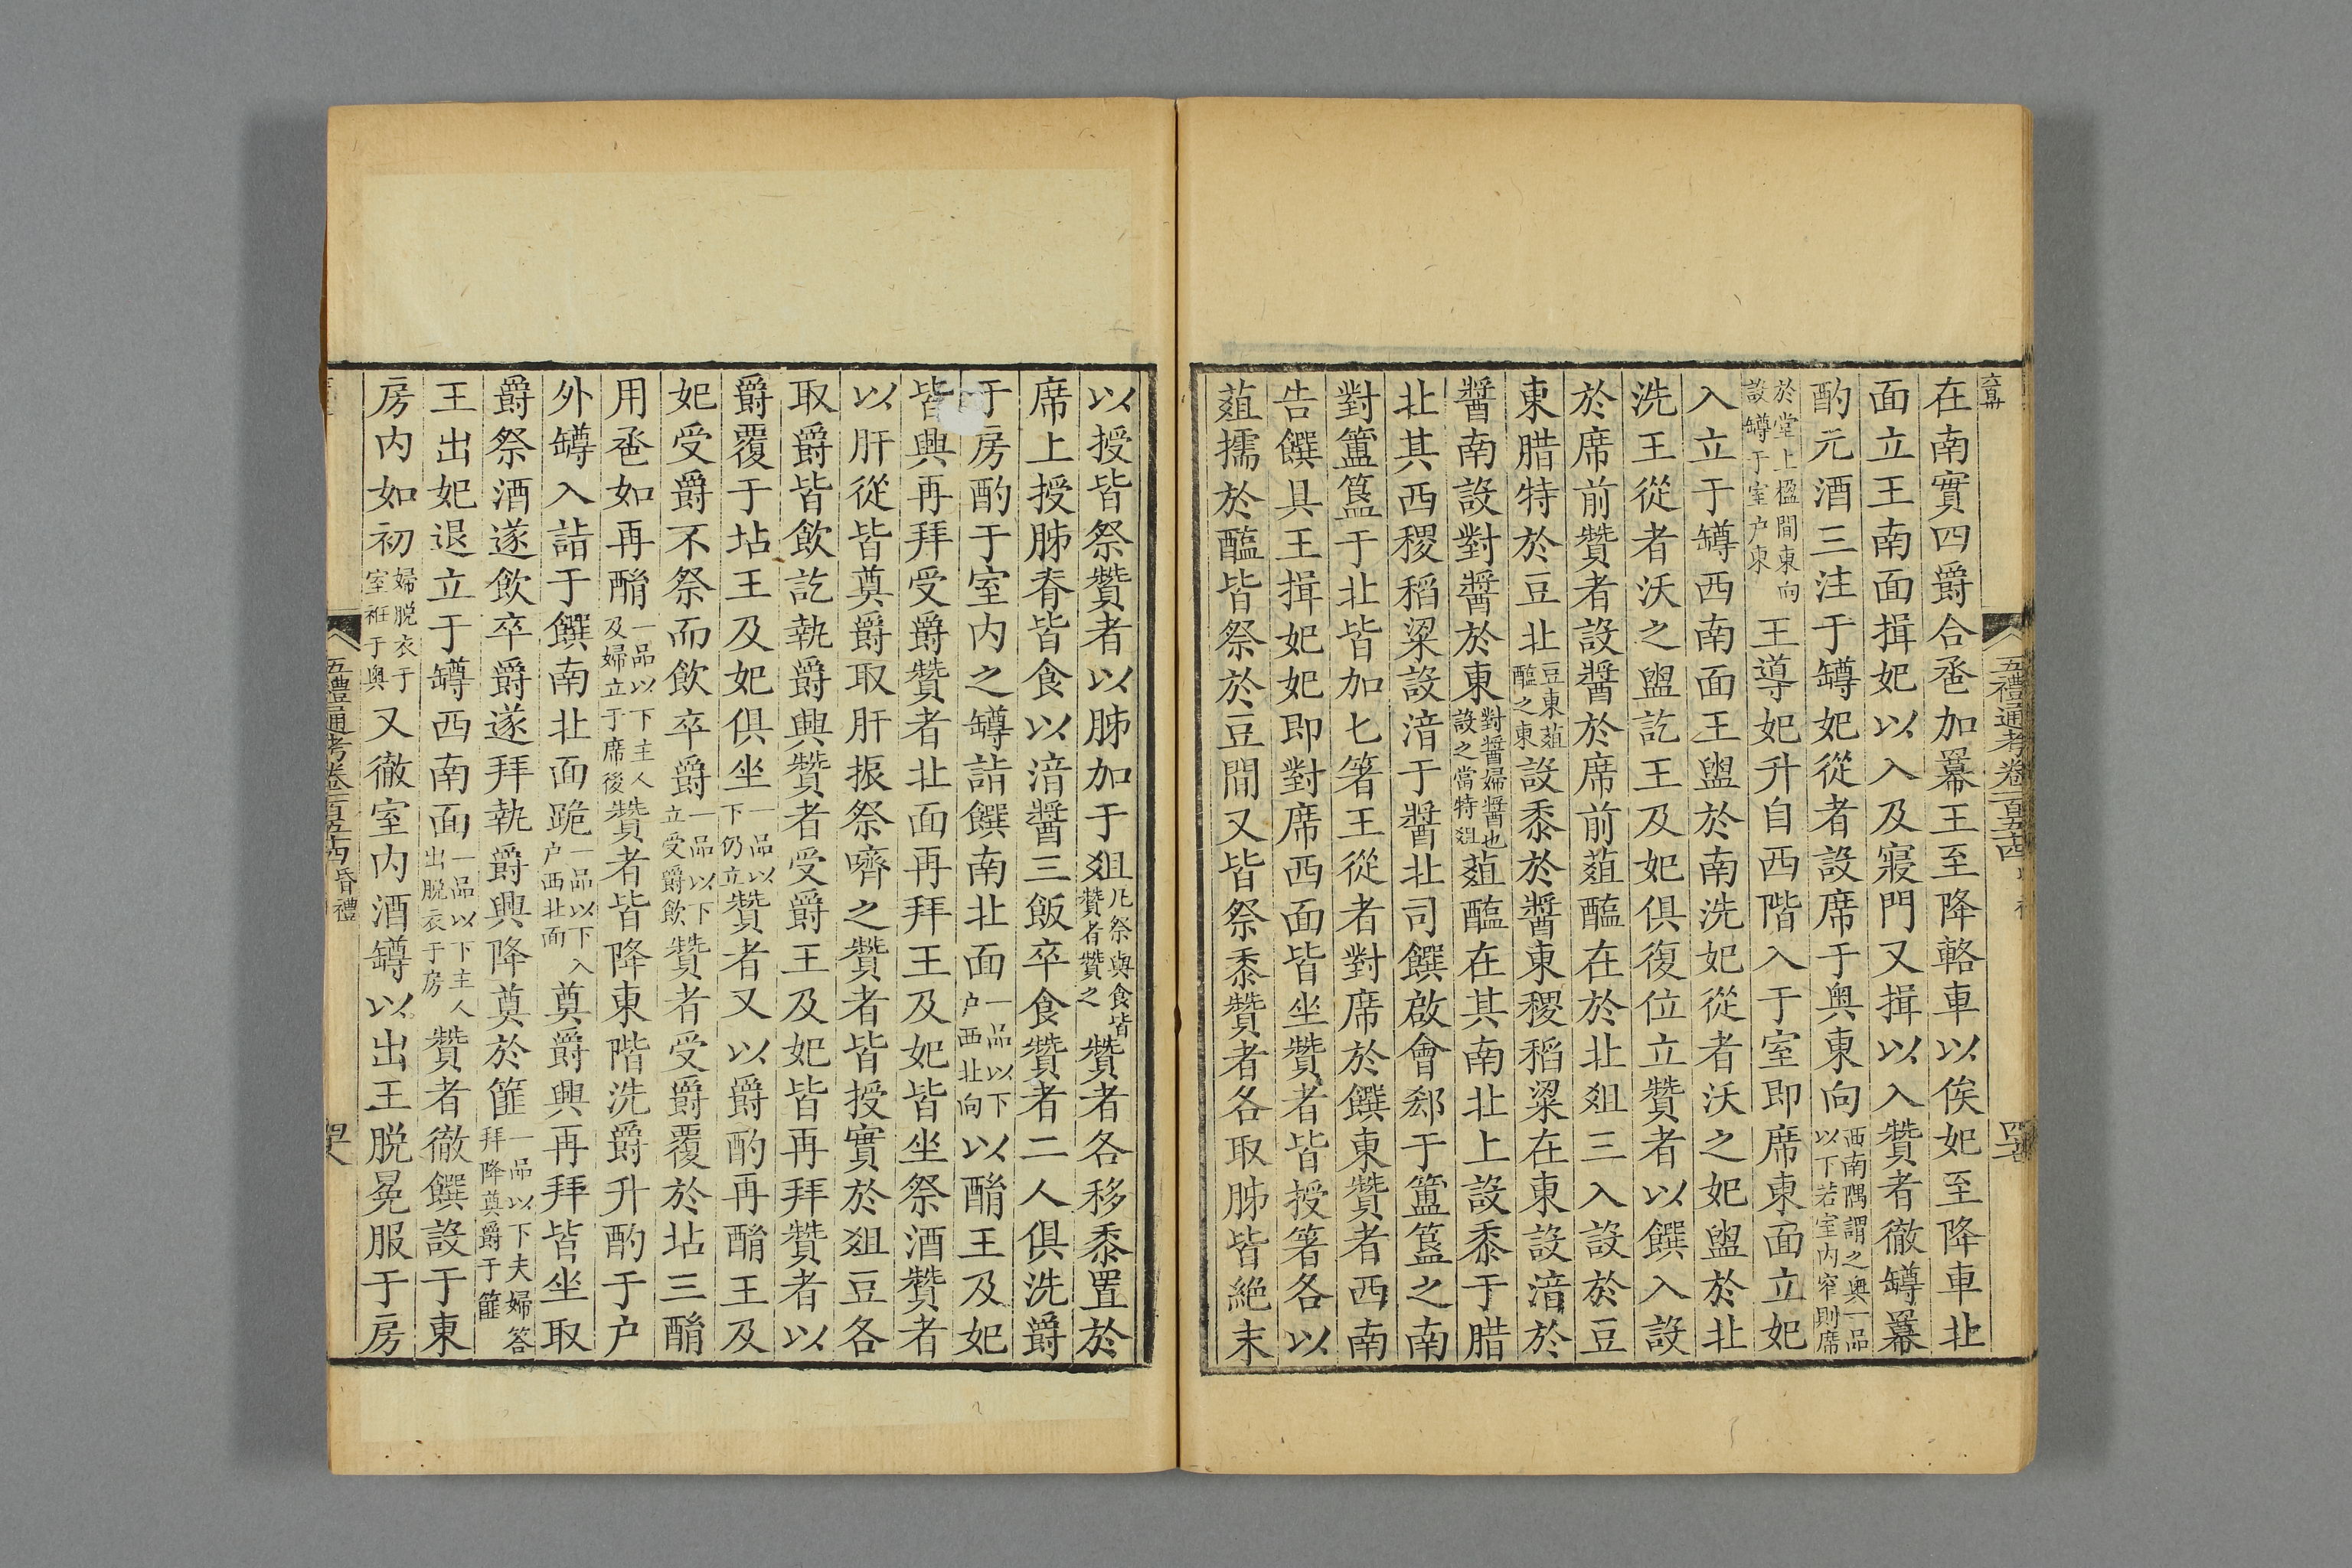 五禮通考卷一百五十四
在南實四爵合巹加冪王至降輅車以俟妃至降車北
面立王南面揖妃以入及寢門又揖以入贊者徹罇冪
酌元酒三注于罇妃從者設席于奥東向西南隅謂之奥一品以下若室内窄則席
於堂上楹間東向設罇于室户東王導妃升自西階入于室即席東面立妃
入立于罇西南面王盥於南洗妃從者沃之妃盥於北
洗王從者沃之盥訖王及妃俱復位立贊者以饌入設
於席前贊者設醬於席前葅醢在於北俎三入設於豆
東腊特於豆北豆東葅醢之東設黍於醬東稷稻粱在東設湆於
醬南設對醬於東對醬婦醬也設之當特俎葅醢在其南北上設黍于腊
北其西稷稻粱設湆于醬北司饌啟會郄于簠簋之南
對簠簋于北皆加匕箸王從者對席於饌東贊者西南
告饌具王揖妃妃即對席西面皆坐贊者皆授箸各以
葅擩於醢皆祭於豆間又皆祭黍贊者各取肺皆絶末
以授皆祭贊者以肺加于俎凡祭與食皆贊者贊之贊者各移黍置於
席上授肺脊皆食以湆醬三飯卒食贊者二人俱洗爵
于房酌于室内之罇詣饌南北面一品以下户西北向以酳王及妃
皆興再拜受爵贊者北面再拜王及妃皆坐祭酒贊者
以肝從皆奠爵取肝振祭嚌之贊者皆授實於俎豆各
取爵皆飲訖執爵興贊者受爵王及妃皆再拜贊者以
爵覆于坫王及妃俱坐一品以下仍立贊者又以爵酌再酳王及
妃受爵不祭而飲卒爵一品以下立受爵飲贊者受爵覆於坫三酳
用巹如再酳一品以下主人及婦立于席後贊者皆降東階洗爵升酌于户
外罇入詣于饌南北面跪一品以下入户西北面奠爵興再拜皆坐取
爵祭酒遂飲卒爵遂拜執爵興降奠於篚一品以下夫婦答拜降奠爵于篚
王出妃退立于罇西南面一品以下主人出脱衣于房贊者徹饌設于東
房内如初婦脱衣于室袵于奥又徹室内酒罇以出王脱冕服于房
五禮通考卷一百五十四昏禮